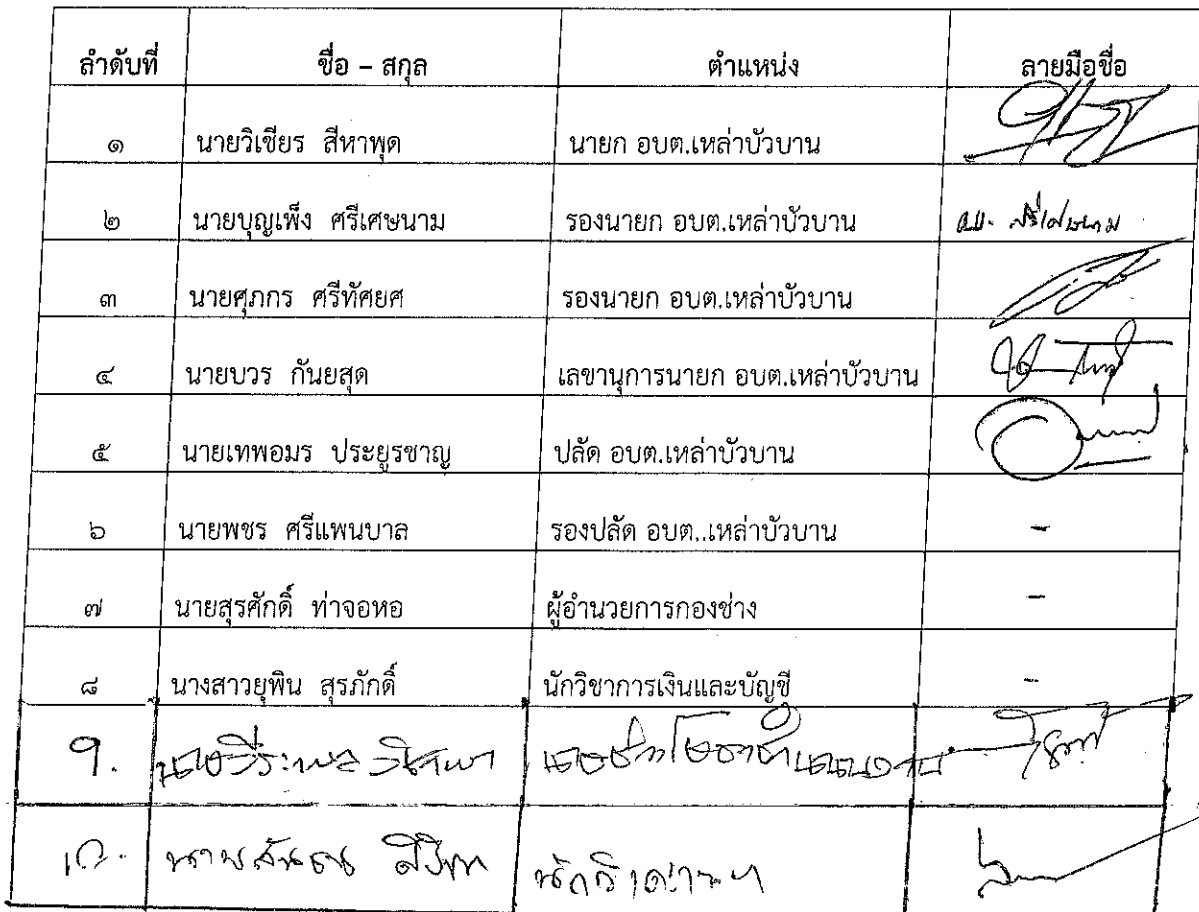 ลำดับที่ ชื่อ – สกุล ตำแหน่ง ลายมือชื่อ
๑ นายวิเชียร สีหาพุด นายก อบต.เหล่าบัวบาน
๒ นายบุญเพ็ง ศรีเศษนาม รองนายก อบต.เหล่าบัวบาน บ. ศรีเศษนาม
๓ นายศุภกร ศรีทัศยศ รองนายก อบต.เหล่าบัวบาน
๔ นายบวร กันยสุด เลขานุการนายก อบต.เหล่าบัวบาน
๕ นายเทพอมร ประยูรชาญ ปลัด อบต.เหล่าบัวบาน
๖ นายพชร ศรีแพนบาล รองปลัด อบต..เหล่าบัวบาน -
๗ นายสุรศักดิ์ ท่าจอหอ ผู้อำนวยการกองช่าง -
๘ นางสาวยุพิน สุรภักดิ์ นักวิชาการเงินและบัญชี -
9. นายวีระพล นายช่างโยธาชำนาญงาน
10. นาย นักวิเคราะห์ฯ